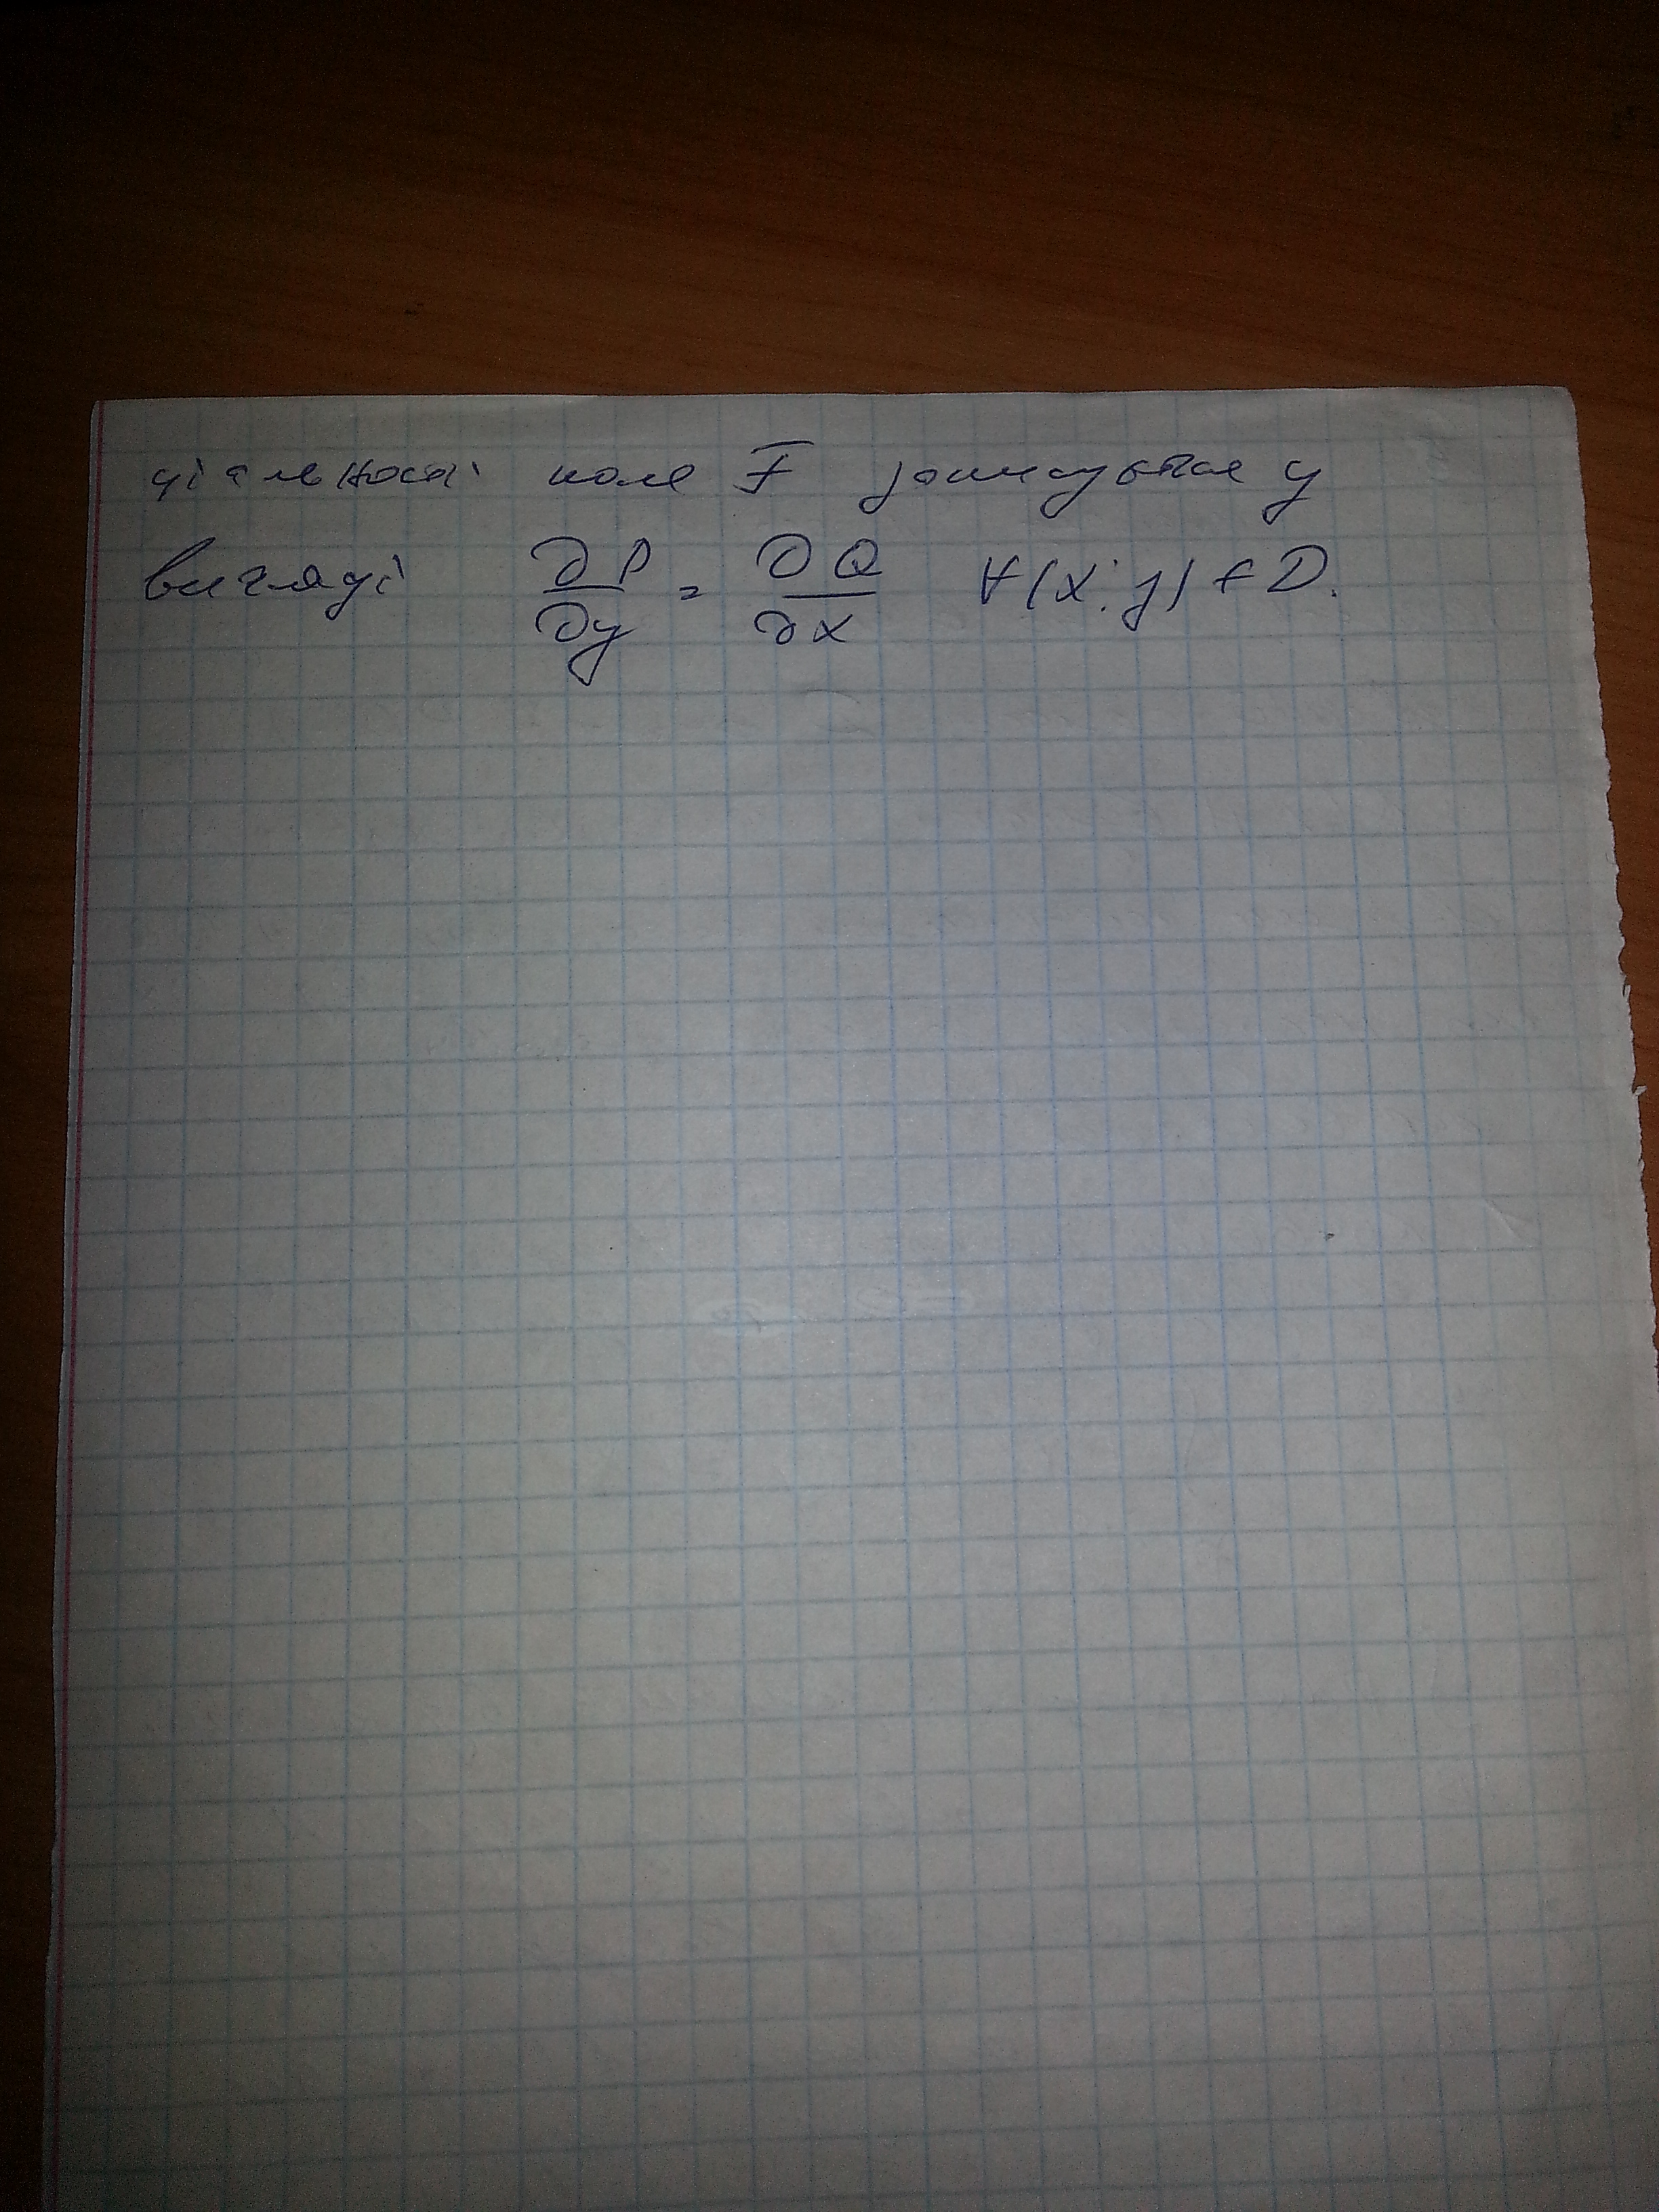 ціальності поля F̅ записується у
вигляді ∂P/∂y = ∂Q/∂x ∀(x; y) ∈ D.